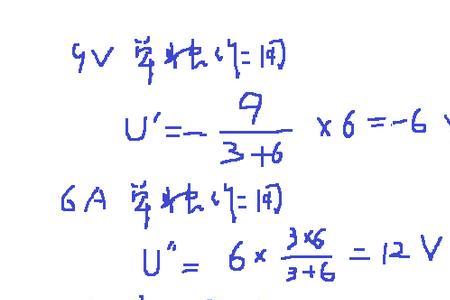 9V 单独作用
U' = - 9/(3+6) × 6 = -6 V
6A 单独作用
U" = 6 × (3×6)/(3+6) = 12 V